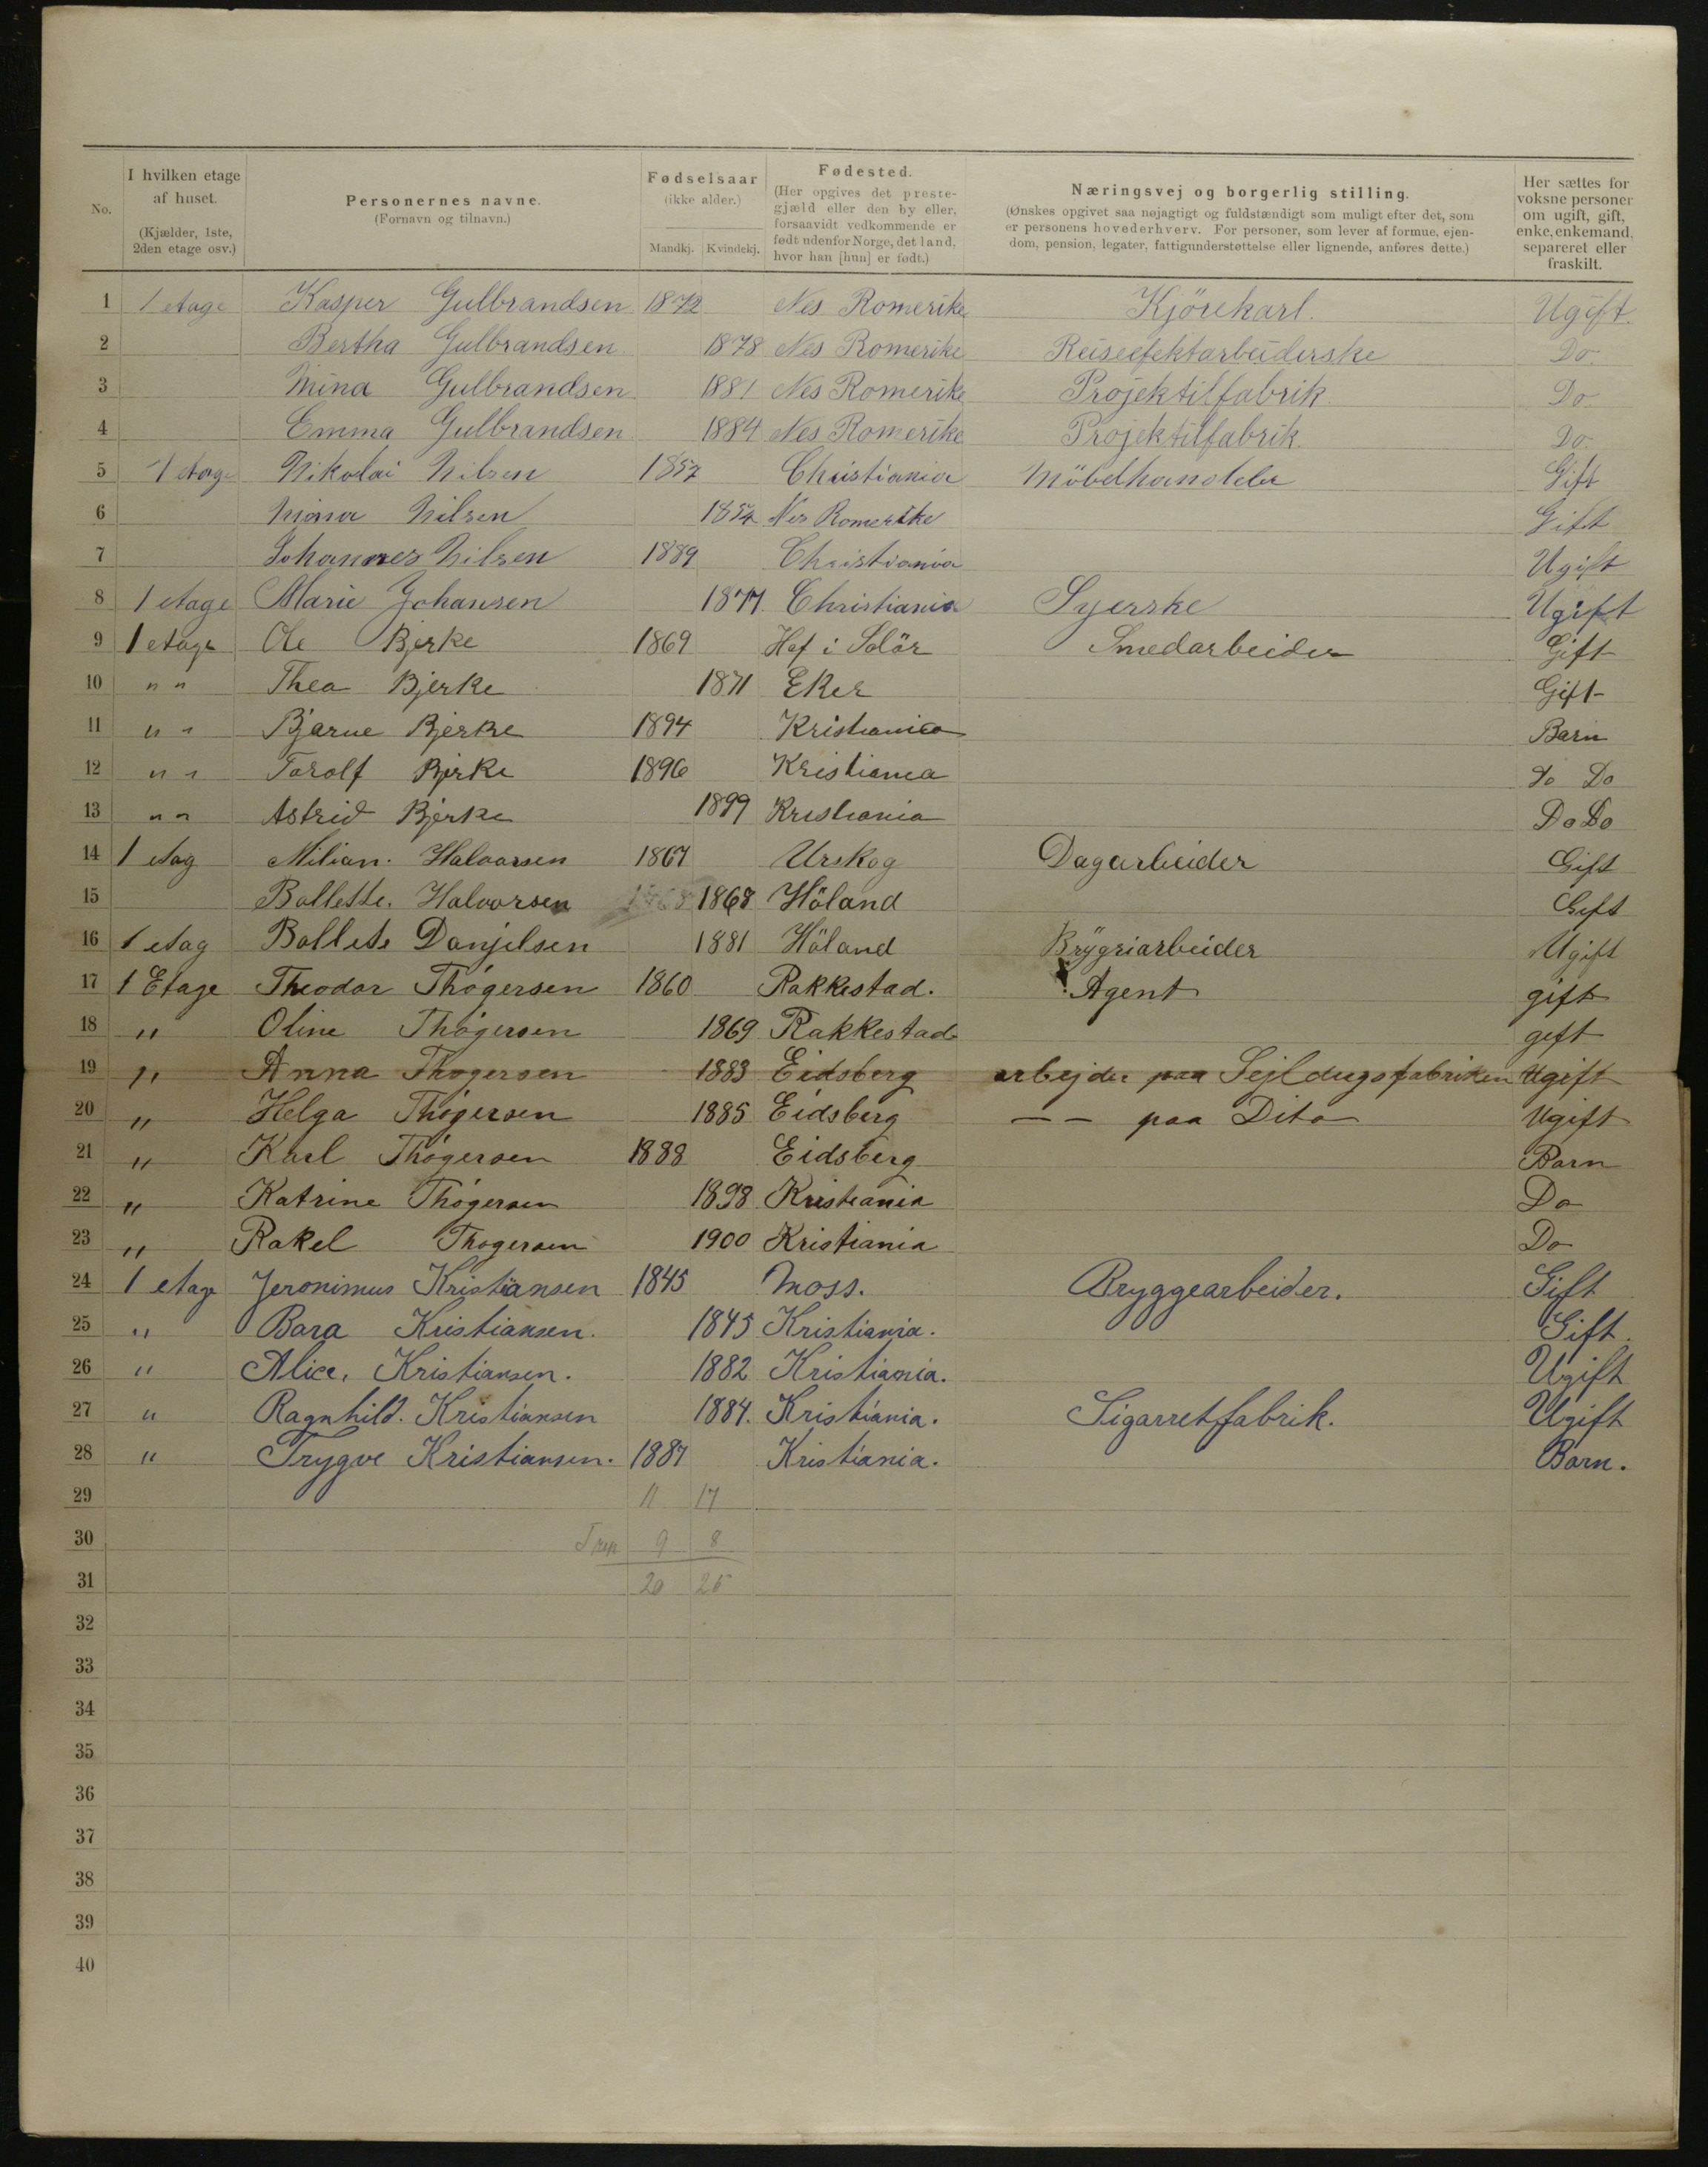 No.
I hvilken etage af huset. (Kjælder, 1ste, 2den etage osv.)
Personernes navne. (Fornavn og tilnavn.)
Fødselsaar (ikke alder.) Mandkj. Kvindekj.
Fødested. (Her opgives det prestegjæld eller den by eller, forsaavidt vedkommende er født udenfor Norge, det land, hvor han [hun] er født.)
Næringsvej og borgerlig stilling. (Ønskes opgivet saa nøjagtigt og fuldstændigt som muligt efter det, som er personens hovederhverv. For personer, som lever af formue, ejendom, pension, legater, fattigunderstøttelse eller lignende, anføres dette.)
Her sættes for voksne personer om ugift, gift, enke, enkemand, separeret eller fraskilt.
1 1 etage Kasper Gulbrandsen 1872 Nes Romerike Kjörekarl. Ugift.
2 Bertha Gulbrandsen 1878 Nes Romerike Reiseefektarbeiderske Do.
3 Mina Gulbrandsen 1881 Nes Romerike Projektilfabrik Do.
4 Emma Gulbrandsen 1884 Nes Romerike Projektilfabrik. Do.
5 1 etage Nikolai Nilsen 1857 Christiania Möbelhandeler Gift
6 Mina Nilsen 1854 Nes Romerike Gift
7 Johannes Nilsen 1889 Christiania Ugift
8 1 etage Marie Johansen 1877 Christiania Syerske Ugift
9 1 etage Ole Bjerke 1869 Hof i Solör Smedarbeider Gift
10 " " Thea Bjerke 1871 Eker Gift
11 " " Bjarne Bjerke 1894 Kristiania Barn
12 " " Torolf Bjerke 1896 Kristiania do Do
13 " " Astrid Bjerke 1899 Kristiania Do Do
14 1 etag Milian. Halvorsen 1867 Urskog Dagarbeider Gift
15 Bollette. Halvorsen 1868 Höland Gift
16 1 etag Bollete Danjelsen 1881 Höland Bryggriarbeider Ugift
17 1 Etage Theodor Thögersen 1860 Rakkestad. Agent gift
18 " Oline Thögersen 1869 Rakkestad gift
19 " Anna Thøgersen 1883 Eidsberg arbejder paa Sejldugsfabriken Ugift
20 " Helga Thögersen 1885 Eidsberg — — paa Dito Ugift
21 " Karl Thögersen 1888 Eidsberg Barn
22 " Katrine Thögersen 1898 Kristiania Do
23 " Rakel Thøgersen 1900 Kristiania Do
24 1 etage Jeronimus Kristiansen 1845 Moss. Bryggearbeider. Gift
25 " Bara Kristiansen. 1845 Kristiania. Gift.
26 " Alice, Kristiansen. 1882 Kristiania. Ugift
27 " Ragnhild. Kristiansen 1884. Kristiania. Sigarretfabrik. Ugift
28 " Trygve Kristiansen. 1887 Kristiania. Barn.
29 11 17
30 9 8
31 20 25
32
33
34
35
36
37
38
39
40